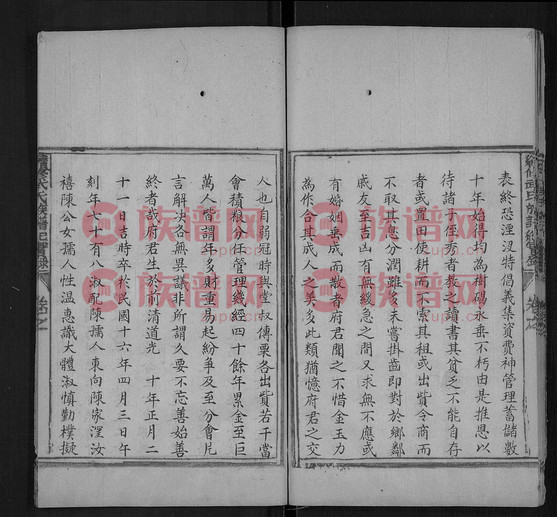 表終恐湮沒特倡義集資費神管理蓄儲數
十年始得均為樹碣永垂不朽由是推恩以
待諸子侄秀者教之讀書其貧乏不能自存
者或置田使耕而不索其租或出貲令商而
不取其息分潤雖多未嘗掛齒即對於鄉鄰
戚友至吉凶有無緩急之間又求無不應或
有婚姻垂成而散者府君聞之不惜金玉力
為作合其成人之美多此類猶憶府君之交
人也自弱冠時與堂叔傳票各出貲若千當
會積穀分任管理幾經四十餘年累金至巨
萬人
言解决各無異議非所謂久要不忘善始善
終者哉府君生於前清道光 十年正月二
十一日吉時卒於民國十六年四月三日午
刻年七十有八淑配陳孺人東向陳家浬汝
禧陳公女孺人性溫惠識大體淑慎勤樸擬
族谱网